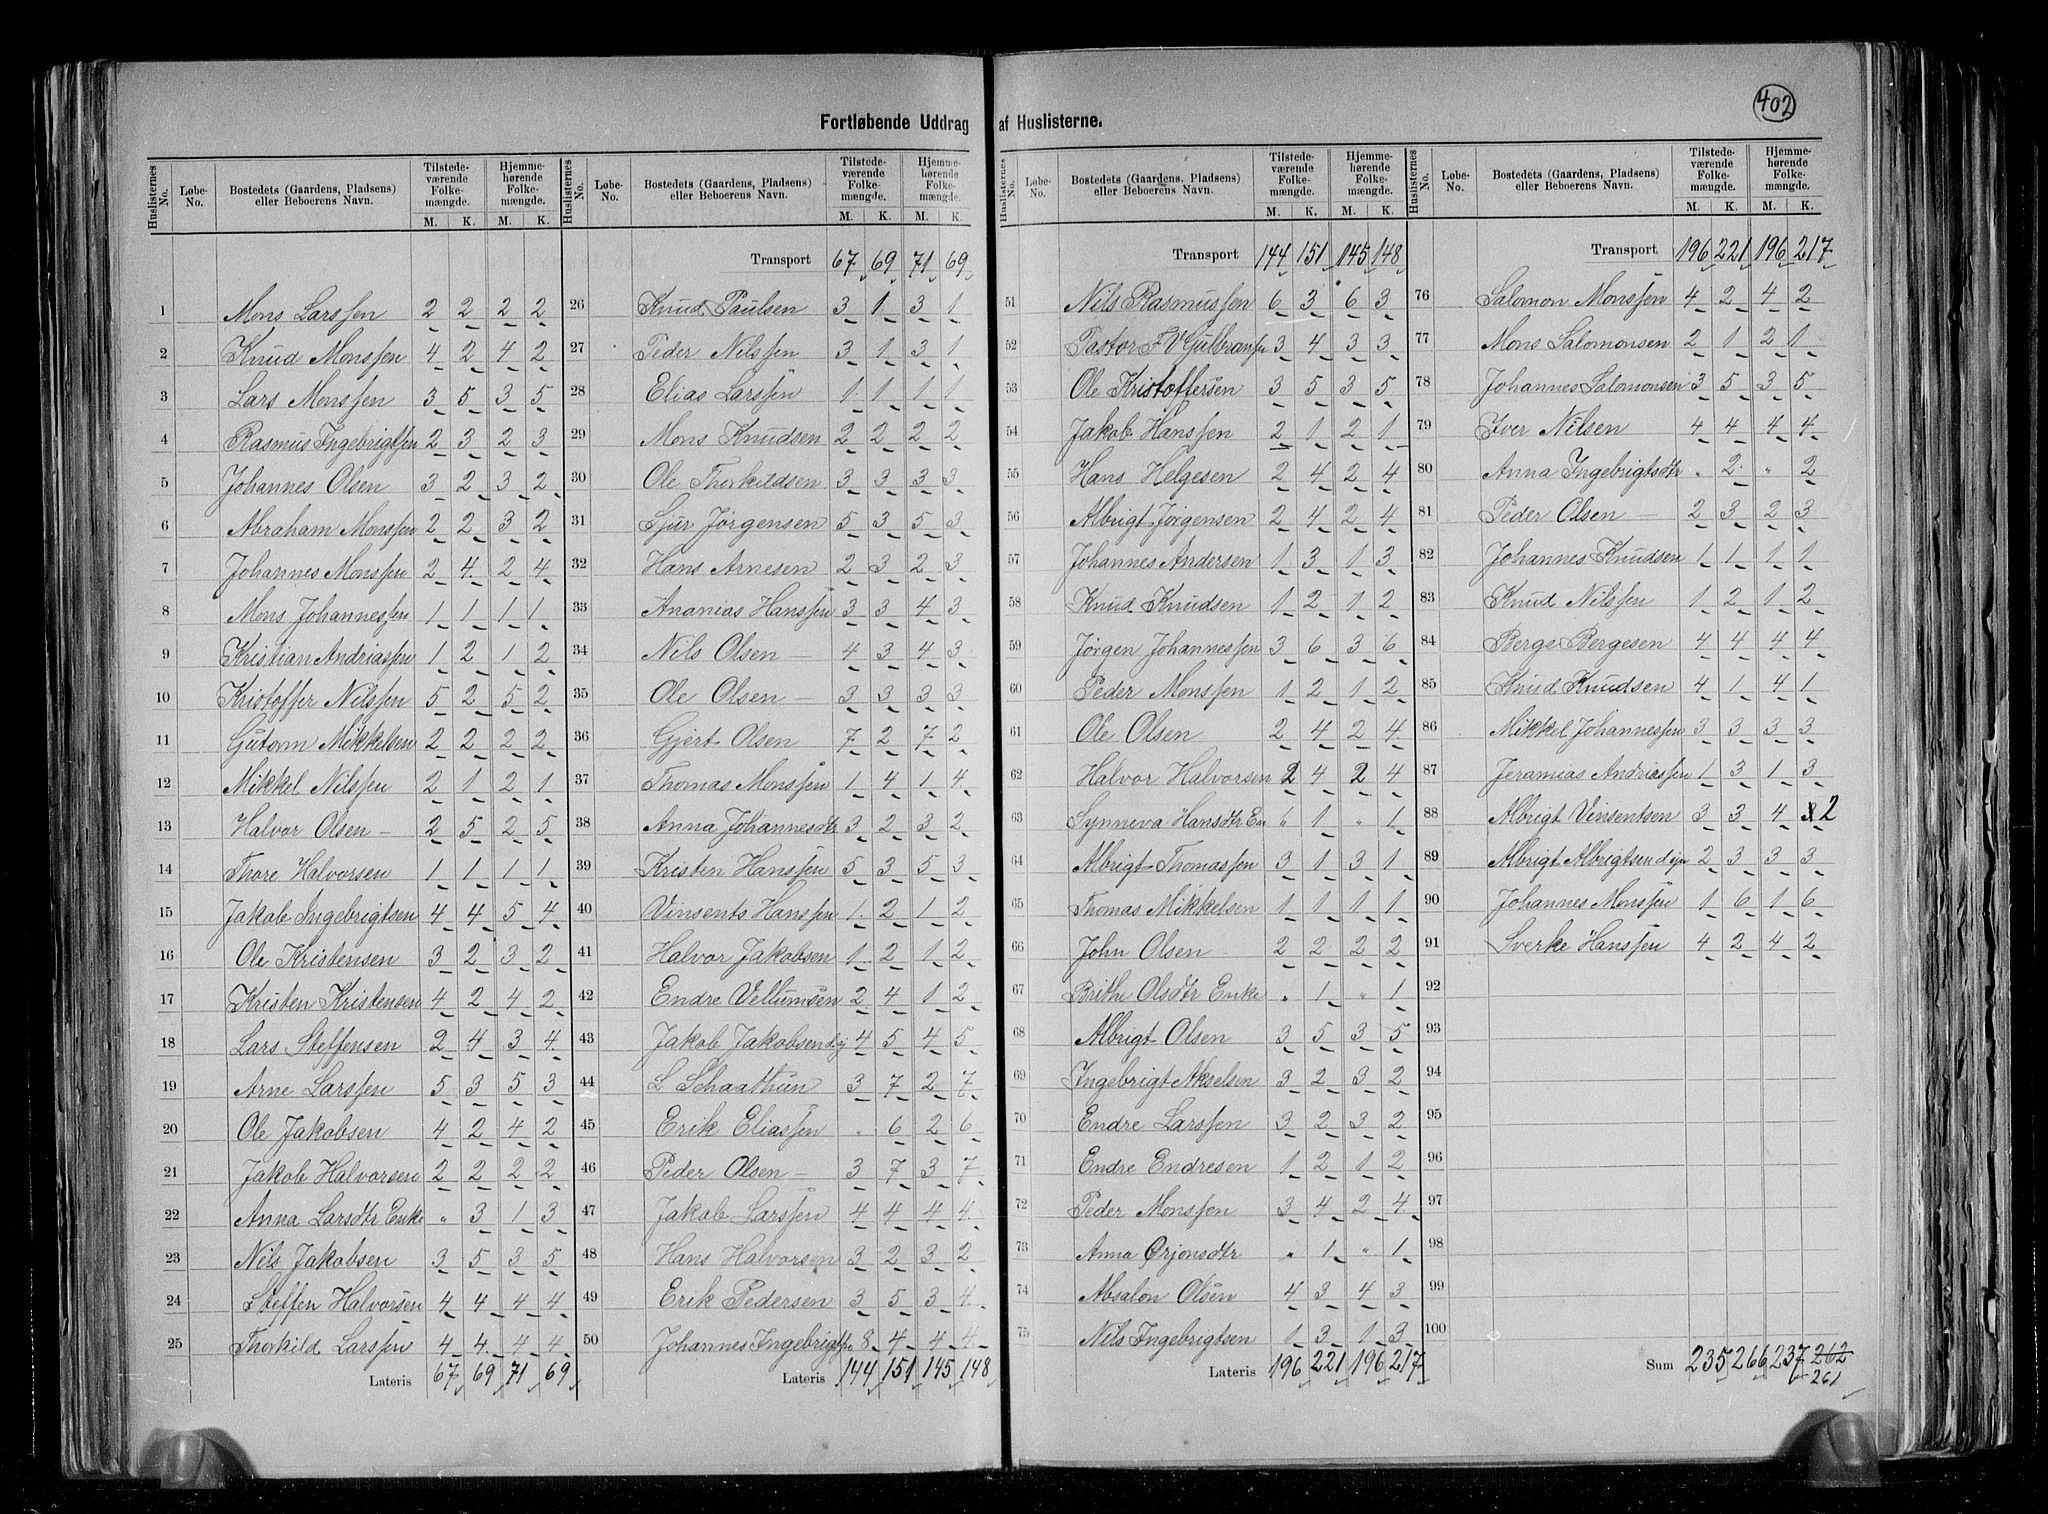 402
Fortløbende Uddrag af Huslisterne.
Huslisternes No. Løbe-No. Bostedets (Gaardens, Pladsens) eller Beboerens Navn. Tilstedeværende Folkemængde. M. K. Hjemmehørende Folkemængde. M. K.
1 Mons Larssen 2 2 2 2
2 Knud Monssen 4 2 4 2
3 Lars Monssen 3 5 3 5
4 Rasmus Ingebrigtsen 2 3 2 3
5 Johannes Olsen 3 2 3 2
6 Abraham Monssen 2 2 3 2
7 Johannes Monssen 2 4 2 4
8 Mons Johannessen 1 1 1 1
9 Kristian Andriassen 1 2 1 2
10 Kristoffer Nilssen 5 2 5 2
11 Gutorm Mikkelsen 2 2 2 2
12 Mikkel Nilssen 2 1 2 1
13 Halvor Olsen – 2 5 2 5
14 Thore Halvorsen 1 1 1 1
15 Jakob Ingebrigtsen 4 4 5 4
16 Ole Kristensen 3 2 3 2
17 Kristen Kristensen 4 2 4 2
18 Lars Steffensen 2 4 3 4
19 Arne Larssen 5 3 5 3
20 Ole Jakobsen 4 2 4 2
21 Jakob Halvorsen 2 2 2 2
22 Anna Larsdtr Enke " 3 1 3
23 Nils Jakobsen 3 5 3 5
24 Steffen Halvorsen 4 4 4 4
25 Thorkild Larssen 4 4 4 4
Lateris 67 69 71 69
Huslisternes No. Løbe-No. Bostedets (Gaardens, Pladsens) eller Beboerens Navn. Tilstedeværende Folkemængde. M. K. Hjemmehørende Folkemængde. M. K.
Transport 67 69 71 69
26 Knud Paulsen 3 1 3 1
27 Peder Nilssen 3 1 3 1
28 Elias Larssen 1 1 1 1
29 Mons Knudsen 2 2 2 2
30 Ole Thorkildsen 3 3 3 3
31 Sjur Jørgensen 5 3 5 3
32 Hans Arnesen 2 3 2 3
33 Ananias Hanssen 3 3 4 3
34 Nils Olsen – 4 3 4 3
35 Ole Olsen – 3 3 3 3
36 Gjert Olsen 7 2 7 2
37 Thomas Monssen 1 4 1 4
38 Anna Johannesdtr 3 2 3 2
39 Kristen Hanssen 5 3 5 3
40 Vinsents Hanssen 1 2 1 2
41 Halvor Jakobsen 1 2 1 2
42 Endre Vellumsen 2 4 1 2
43 Jakob Jakobsen dij 4 5 4 5
44 L Schaathun 3 7 2 7
45 Erik Eliassen " 6 2 6
46 Peder Olsen – 3 7 3 7
47 Jakob Larssen 4 4 4 4
48 Hans Halvorsen 3 2 3 2
49 Erik Pedersen 3 5 3 4
50 Johannes Ingebrigtsen 8 4 4 4
Lateris 144 151 145 148
Huslisternes No. Løbe-No. Bostedets (Gaardens, Pladsens) eller Beboerens Navn. Tilstedeværende Folkemængde. M. K. Hjemmehørende Folkemængde. M. K.
Transport 144 151 145 148
51 Nils Rasmussen 6 3 6 3
52 Pastor F V Gulbransen 3 4 3 3
53 Ole Kristoffersen 3 5 3 5
54 Jakob Hanssen 2 1 2 1
55 Hans Helgesen 2 4 2 4
56 Albrigt Jørgensen 2 4 2 4
57 Johannes Andersen 1 3 1 3
58 Knud Knudsen 1 2 1 2
59 Jørgen Johannessen 3 6 3 6
60 Peder Monssen 1 2 1 2
61 Ole Olsen 2 4 2 4
62 Halvor Halvorsen 2 4 2 4
63 Synneva Hansdtr En " 1 " 1
64 Albrigt Thomassen 3 1 3 1
65 Thomas Mikkelsen 1 1 1 1
66 John Olsen 2 2 2 2
67 Brithe Olsdtr Enke " 1 " 1
68 Albrigt Olsen 3 5 3 5
69 Ingebrigt Akselsen 3 2 3 2
70 Endre Larssen 3 2 3 2
71 Endre Endresen 1 2 1 2
72 Peder Monssen 3 4 2 4
73 Anna Ørjonsdtr " 1 " 1
74 Absalon Olsen 4 3 4 3
75 Nils Ingebrigtsen 1 3 1 3
Lateris 196 221 196 217
Huslisternes No. Løbe-No. Bostedets (Gaardens, Pladsens) eller Beboerens Navn. Tilstedeværende Folkemængde. M. K. Hjemmehørende Folkemængde. M. K.
Transport 196 221 196 217
76 Salomon Monssen 4 2 4 2
77 Mons Salomonsen 2 1 2 1
78 Johannes Salomonsen 3 5 3 5
79 Iver Nilsen 4 4 4 4
80 Anna Ingebrigtsdtr " 2 " 2
81 Peder Olsen – 2 3 2 3
82 Johannes Knudsen 1 1 1 1
83 Knud Nilssen 1 2 1 2
84 Berge Bergesen 4 4 4 4
85 Knud Knudsen 4 1 4 1
86 Mikkel Johannessen 3 3 3 3
87 Jeramias Andriassen 1 3 1 3
88 Albrigt Vinsentsen 3 3 4 3 2
89 Albrigt Albrigtsen dijn 2 3 3 3
90 Johannes Monssen 1 6 1 6
91 Sverke Hanssen 4 2 4 2
92
93
94
95
96
97
98
99
100
Sum 235 266 237 262
261